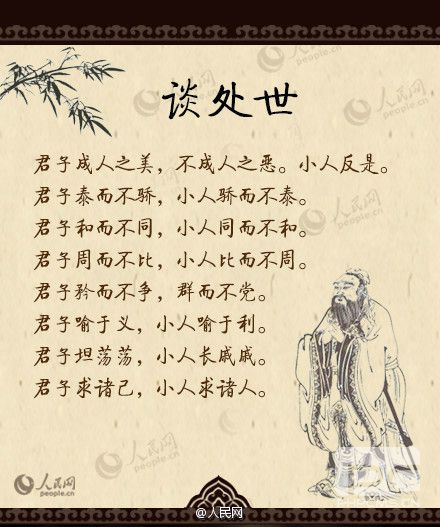 人民网
people.cn
谈处世
人民网
people.cn
君子成人之美，不成人之恶。小人反是。
君子泰而不骄，小人骄而不泰。
君子和而不同，小人同而不和。
君子周而不比，小人比而不周。
君子矜而不争，群而不党。
君子喻于义，小人喻于利。
君子坦荡荡，小人长戚戚。
君子求诸己，小人求诸人。
人民网
people.cn
人民网
people.cn
@人民网